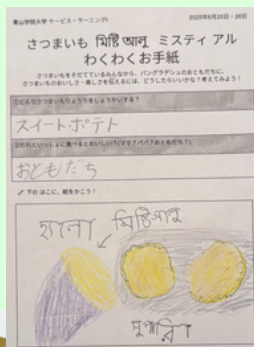 青山学院大学 サービス・ラーニング1
2025年6月25日・26日
さつまいも মিষ্টি আলু ミスティ アル
わくわくお手紙
さつまいもをそだてているみんなから、バングラデシュのおともだちに、
さつまいものおいしさ・楽しさを伝えるには、どうしたらいいかな？考えてみよう！
①どんなさつまいもりょうりをしょうかいする？
スイートポテト
②だれといっしょに食べるとおいしい？(ママ？パパ？おともだち？)
おともだち
下の はこに、絵をかこう！
মিষ্টি আলু